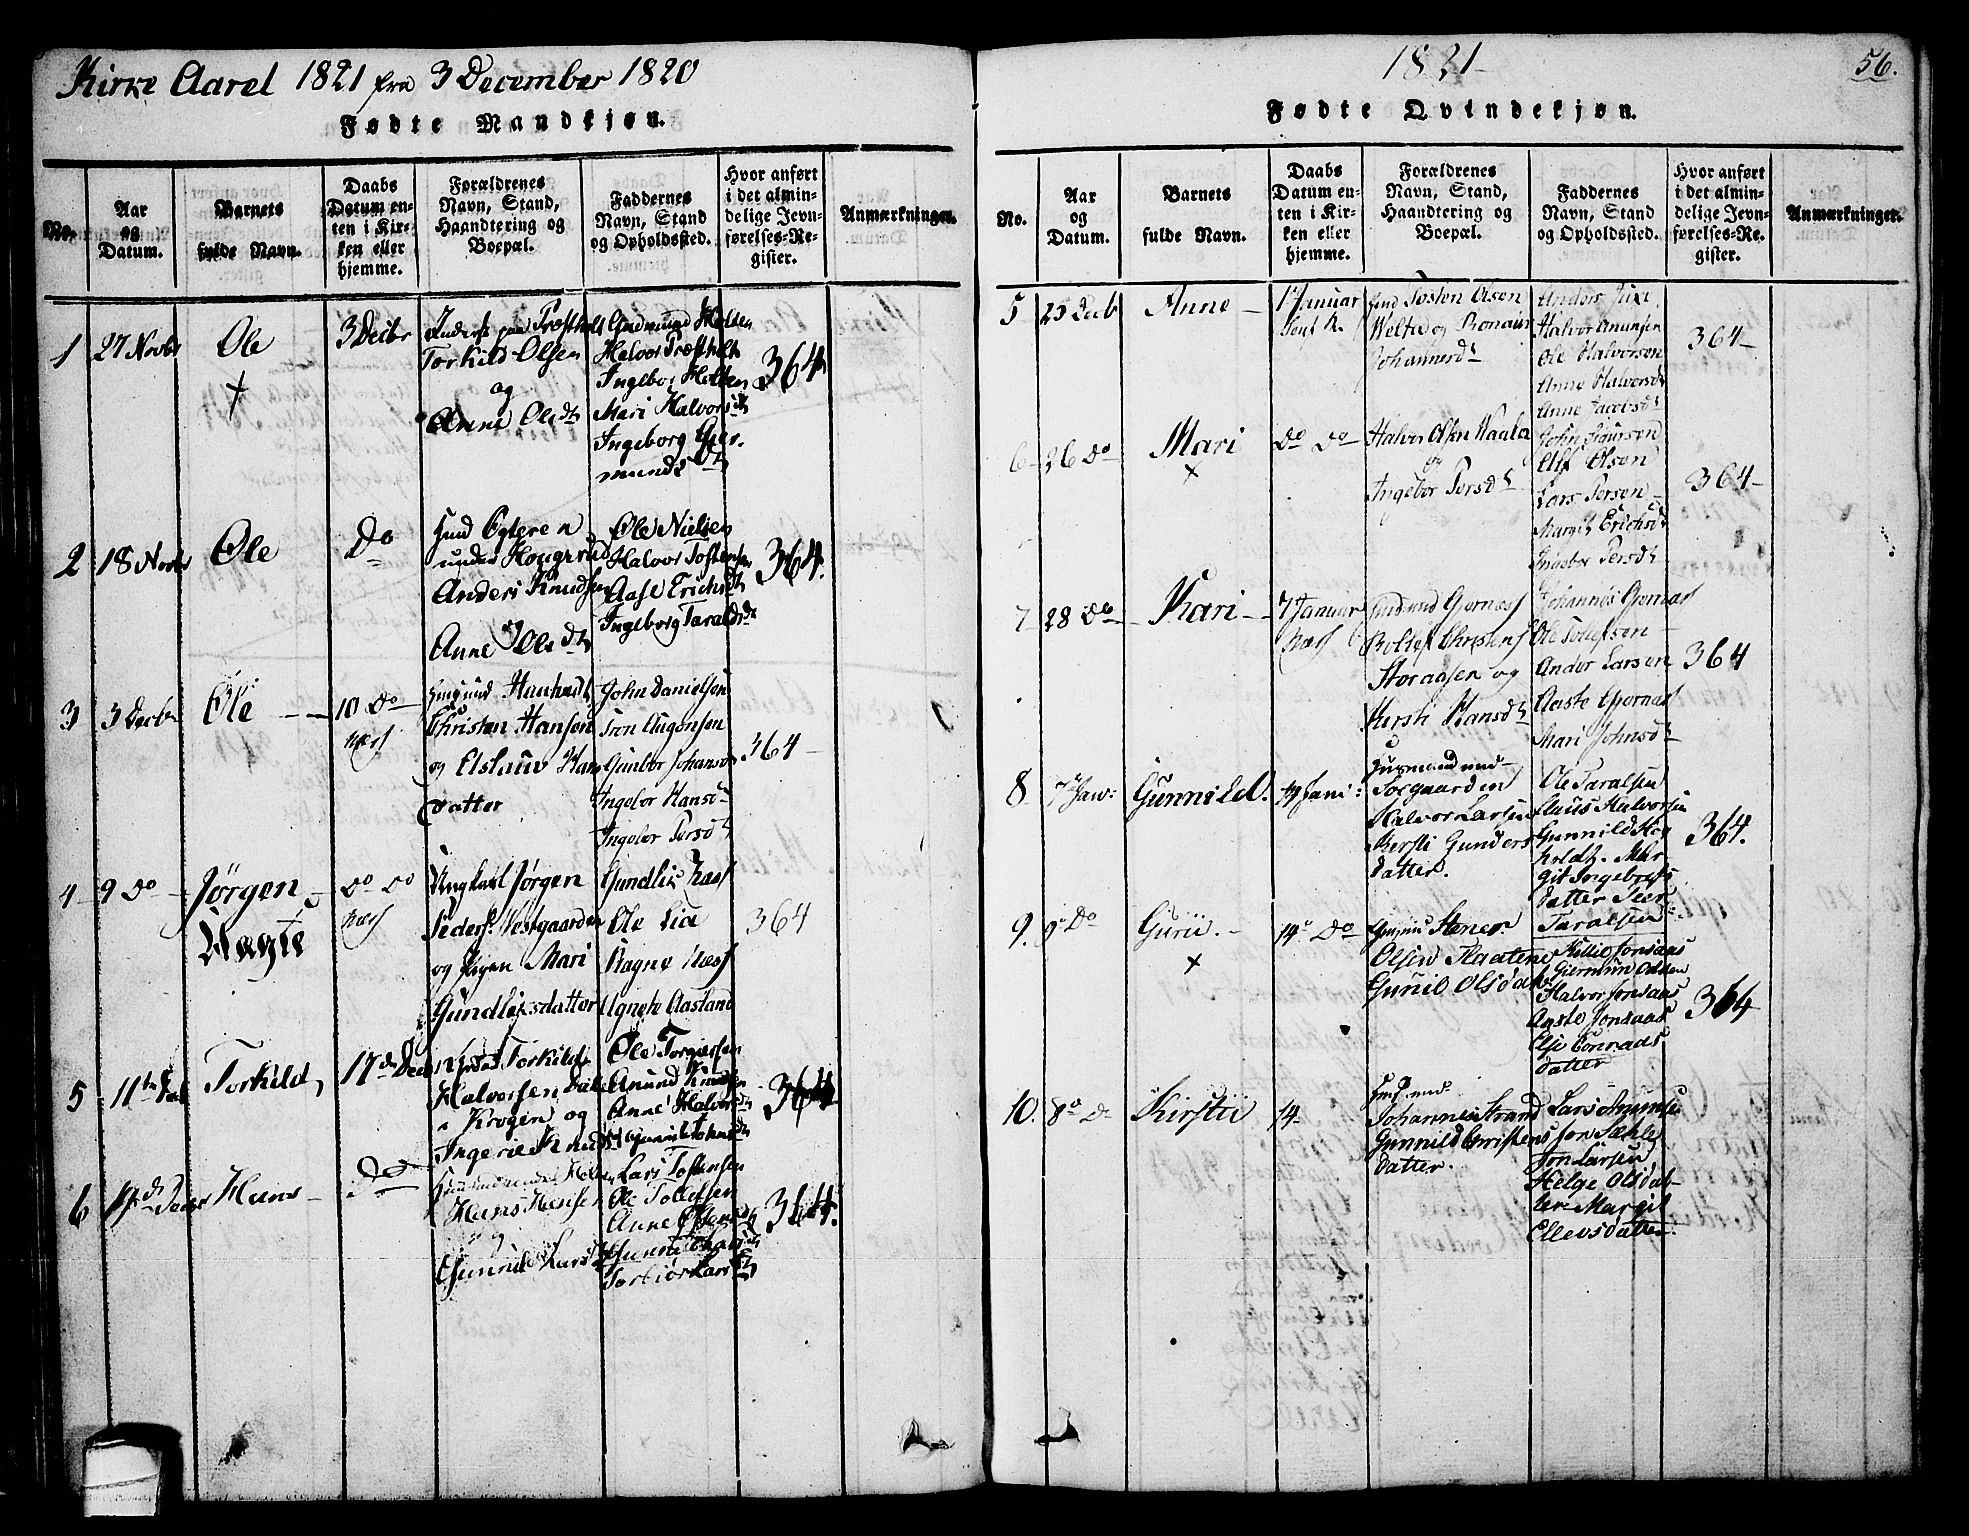 Kirke Aaret 1821 fra 3 December 1820
Fødte Mandkjøn.
No.
Aar
og
Datum.
Barnets
fulde Navn.
Daabs
Datum en-
ten i Kir-
ken eller
hjemme.
Forældrenes
Navn, Stand,
Haandtering og
Boepæl.
Faddernes
Navn, Stand
og Opholdssted.
Hvor anført
i det almin-
delige Jevn-
førelses-Re-
gister.
Anmærkninger.
1
27 Novbr
Ole
3 Decbr
Torkild Olsen
og
Anne Olsdt
Gudmund Holten
Halvor Træftholt
Ingebor Holten
Mari Halvorsdt
Ingeborg Gier-
munds Dt
364
2
18 Novbr
Ole
Do
under Hougerud
Anders Knudsen
Anne Olsdt
Ole Nielsen
Halvor Tostensen
Aase Erichsdt
Ingeborg Taraldsdt
364.
3
3 Decbr
Ole
10 Do
Næss
Christen Hansen
og Elslauv Hans
datter
John Danielsen
Tron Augonsen
Gunbor Johansd
Ingebor Hansd
Ingebor Persdt
364
4
9 Do
Jørgen
Vagte
Do Do
Næss
Ungkarl Jørgen
Pedersn Vestgaarden
og Pigen Mari
Gundleiksdatter
Gundleik Næss
Ole Lia
Ragne Næss
Agnete Aasland
364
5
11te
Torkild
17de Decbr
Torkild
Halvorsen
i Krogen og
Ingerie Knudsdt
Ole Torgiersen
Anund Knudsen
Anne Halvorsdt
364
6
Decbr
Hans
Do
Hans Hansen
og
Gunild Larsdt
Lars Tostensen
Ole Tollefsen
Anne
Torbiør Larsdt
364.
1821
56.
Fødte Qvindekjøn.
No.
Aar
og
Datum.
Barnets
fulde Navn.
Daabs
Datum en-
ten i Kir-
ken eller
hjemme.
Forældrenes
Navn, Stand,
Haandtering og
Boepæl.
Faddernes
Navn, Stand
og Opholdssted.
Hvor anført
i det almin-
delige Jevn-
førelses-Re-
gister.
Anmærkninger.
5
25 Decb
Anne
1 Januar
Tosten Olsen
Welta og
Johannesdt
Anders Juve
Halvor Anunsen
Ole Halvorsen
Anne Halvorsdt
Anne Jacobsdt
364
6
26 Do
Mari
Do Do
Halvor Olsen Naala
og
Ingebor Persdt
John Sigursen
Alf Olsen
Lars Persen
Margit Erichsdt
Ingebor Persdt
364
7
28 Do
Kari
7 Januar
Næss
Gjernæss
Christens
Storaasen og
Kersti Hansdt
Johannes Gjernæss
Ole Tollefsen
Ander Larsen
Aaste Gjernæss
Mari Johnsdt
364
8
7 Jan:
Gunnild.
14 Jani:
Husmand und
Torgaarden
Halvor Larsen
Kersti Gunders
datter.
Ole Taralsen
Claus Halvorsen
Gunnild Hog
holdt. Mar
git Ingebrets
datter Peer
Taralsen
364.
9.
9 Do
Gurii.
14 Do
Stener
Olsen Flaatene
Gunil Olsdatr
Killie Jonsaas
Giermun Odden
Halvor Jonsaas
Aaste Jonsaas
Else Conrads
datter
364
10.
8 D
Kirstii
14
Husm. und
Johannes Strand
Gunnild Christens
datter.
Lars Anunsen
Jon Sæhle
Jon Larsen
Helge Olsdat-
ter Margit
Ellevsdatter.